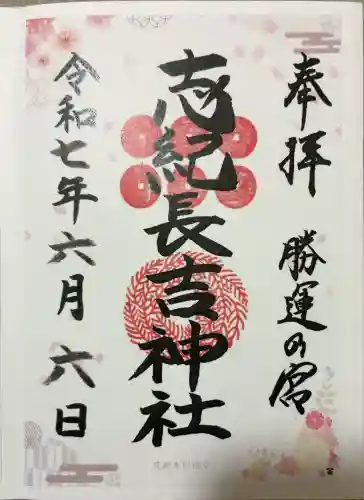 奉拝
勝運の宮
志紀長吉神社
令和七年六月六日